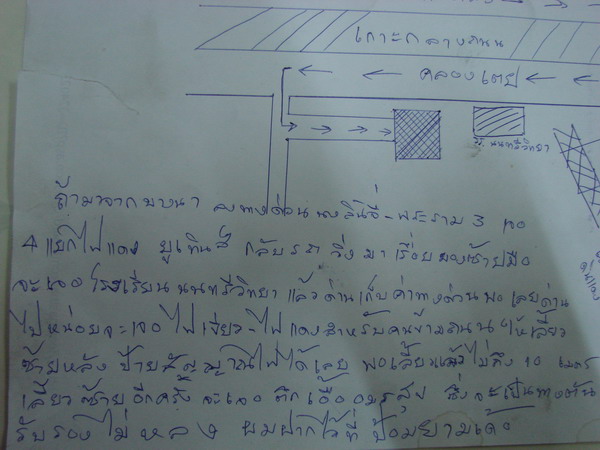 เกาะกลางถนน
คลองเตย
ร.ร. นนทรีวิทยา
ถ้ามาจากบางนา ลงทางด่วน นางลิ้นจี่-พระราม 3 เจอ
4 แยกไฟแดง ยูเทิร์น กลับรถ วิ่งมาเรื่อยๆ ซ้ายมือ
จะเจอโรงเรียนนนทรีวิทยา แล้วด่านเก็บค่าทางด่วน พอเลยด่าน
ไปหน่อยจะเจอ ไฟเขียว-ไฟแดงสำหรับคนข้ามถนน ให้เลี้ยว
ซ้ายหลัง ป้ายสัญญาณไฟได้เลย พอเลี้ยวแล้วไม่ถึง 10 เมตร
เลี้ยวซ้ายอีกครั้ง จะเจอ ตึกเอื้ออมรสุข ซึ่งจะเป็นทางตัน
รับรองไม่หลง ผมฝากไว้ที่ ป้อมยามเด้อ